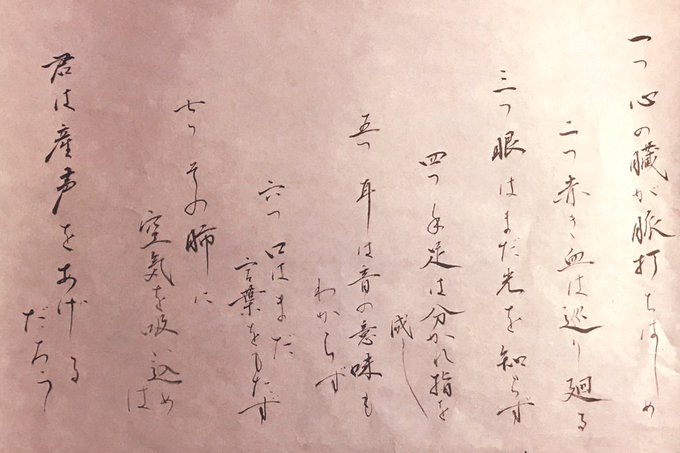 一つ心の臓が脈打ちはじめ
二つ赤き血は巡り廻る
三つ眼はまだ光を知らず
四つ手足は分かれ指を
成し
五つ耳は音の意味も
わからず
六つ口はまだ
言葉をもたず
七つその肺に
空気を吸い込め
ば
君は産声をあげる
だろう